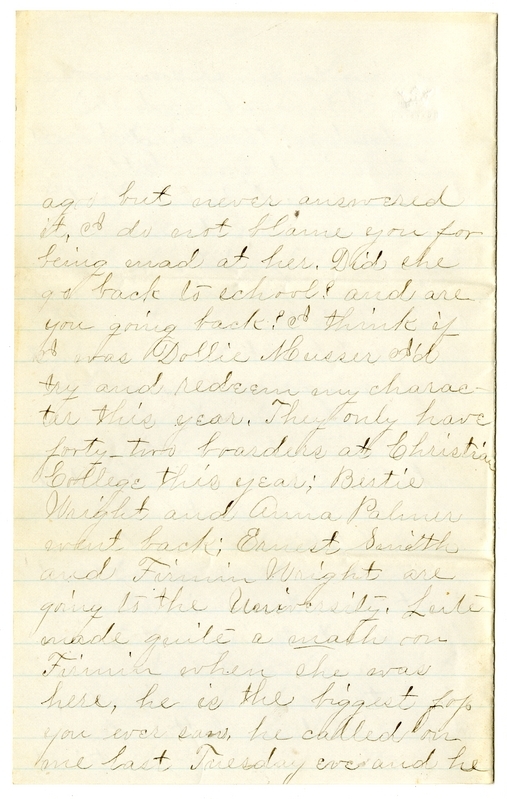 ago but never answered
it, I do not blame you for
being mad at her. Did she
go back to school? and are
you going back? I think if
I was Dollie Musser I'd
try and redeem my charac-
ter this year. They only have
forty-two boarders at Christian
College this year; Bertie
Wright and Anna Palmer
went back; Ernest Smith
and Firmin Wright are
going to the University.
made quite a mash on
Firmin when she was
here, he is the biggest fop
you ever saw, he called on
me last Tuesday eve and he